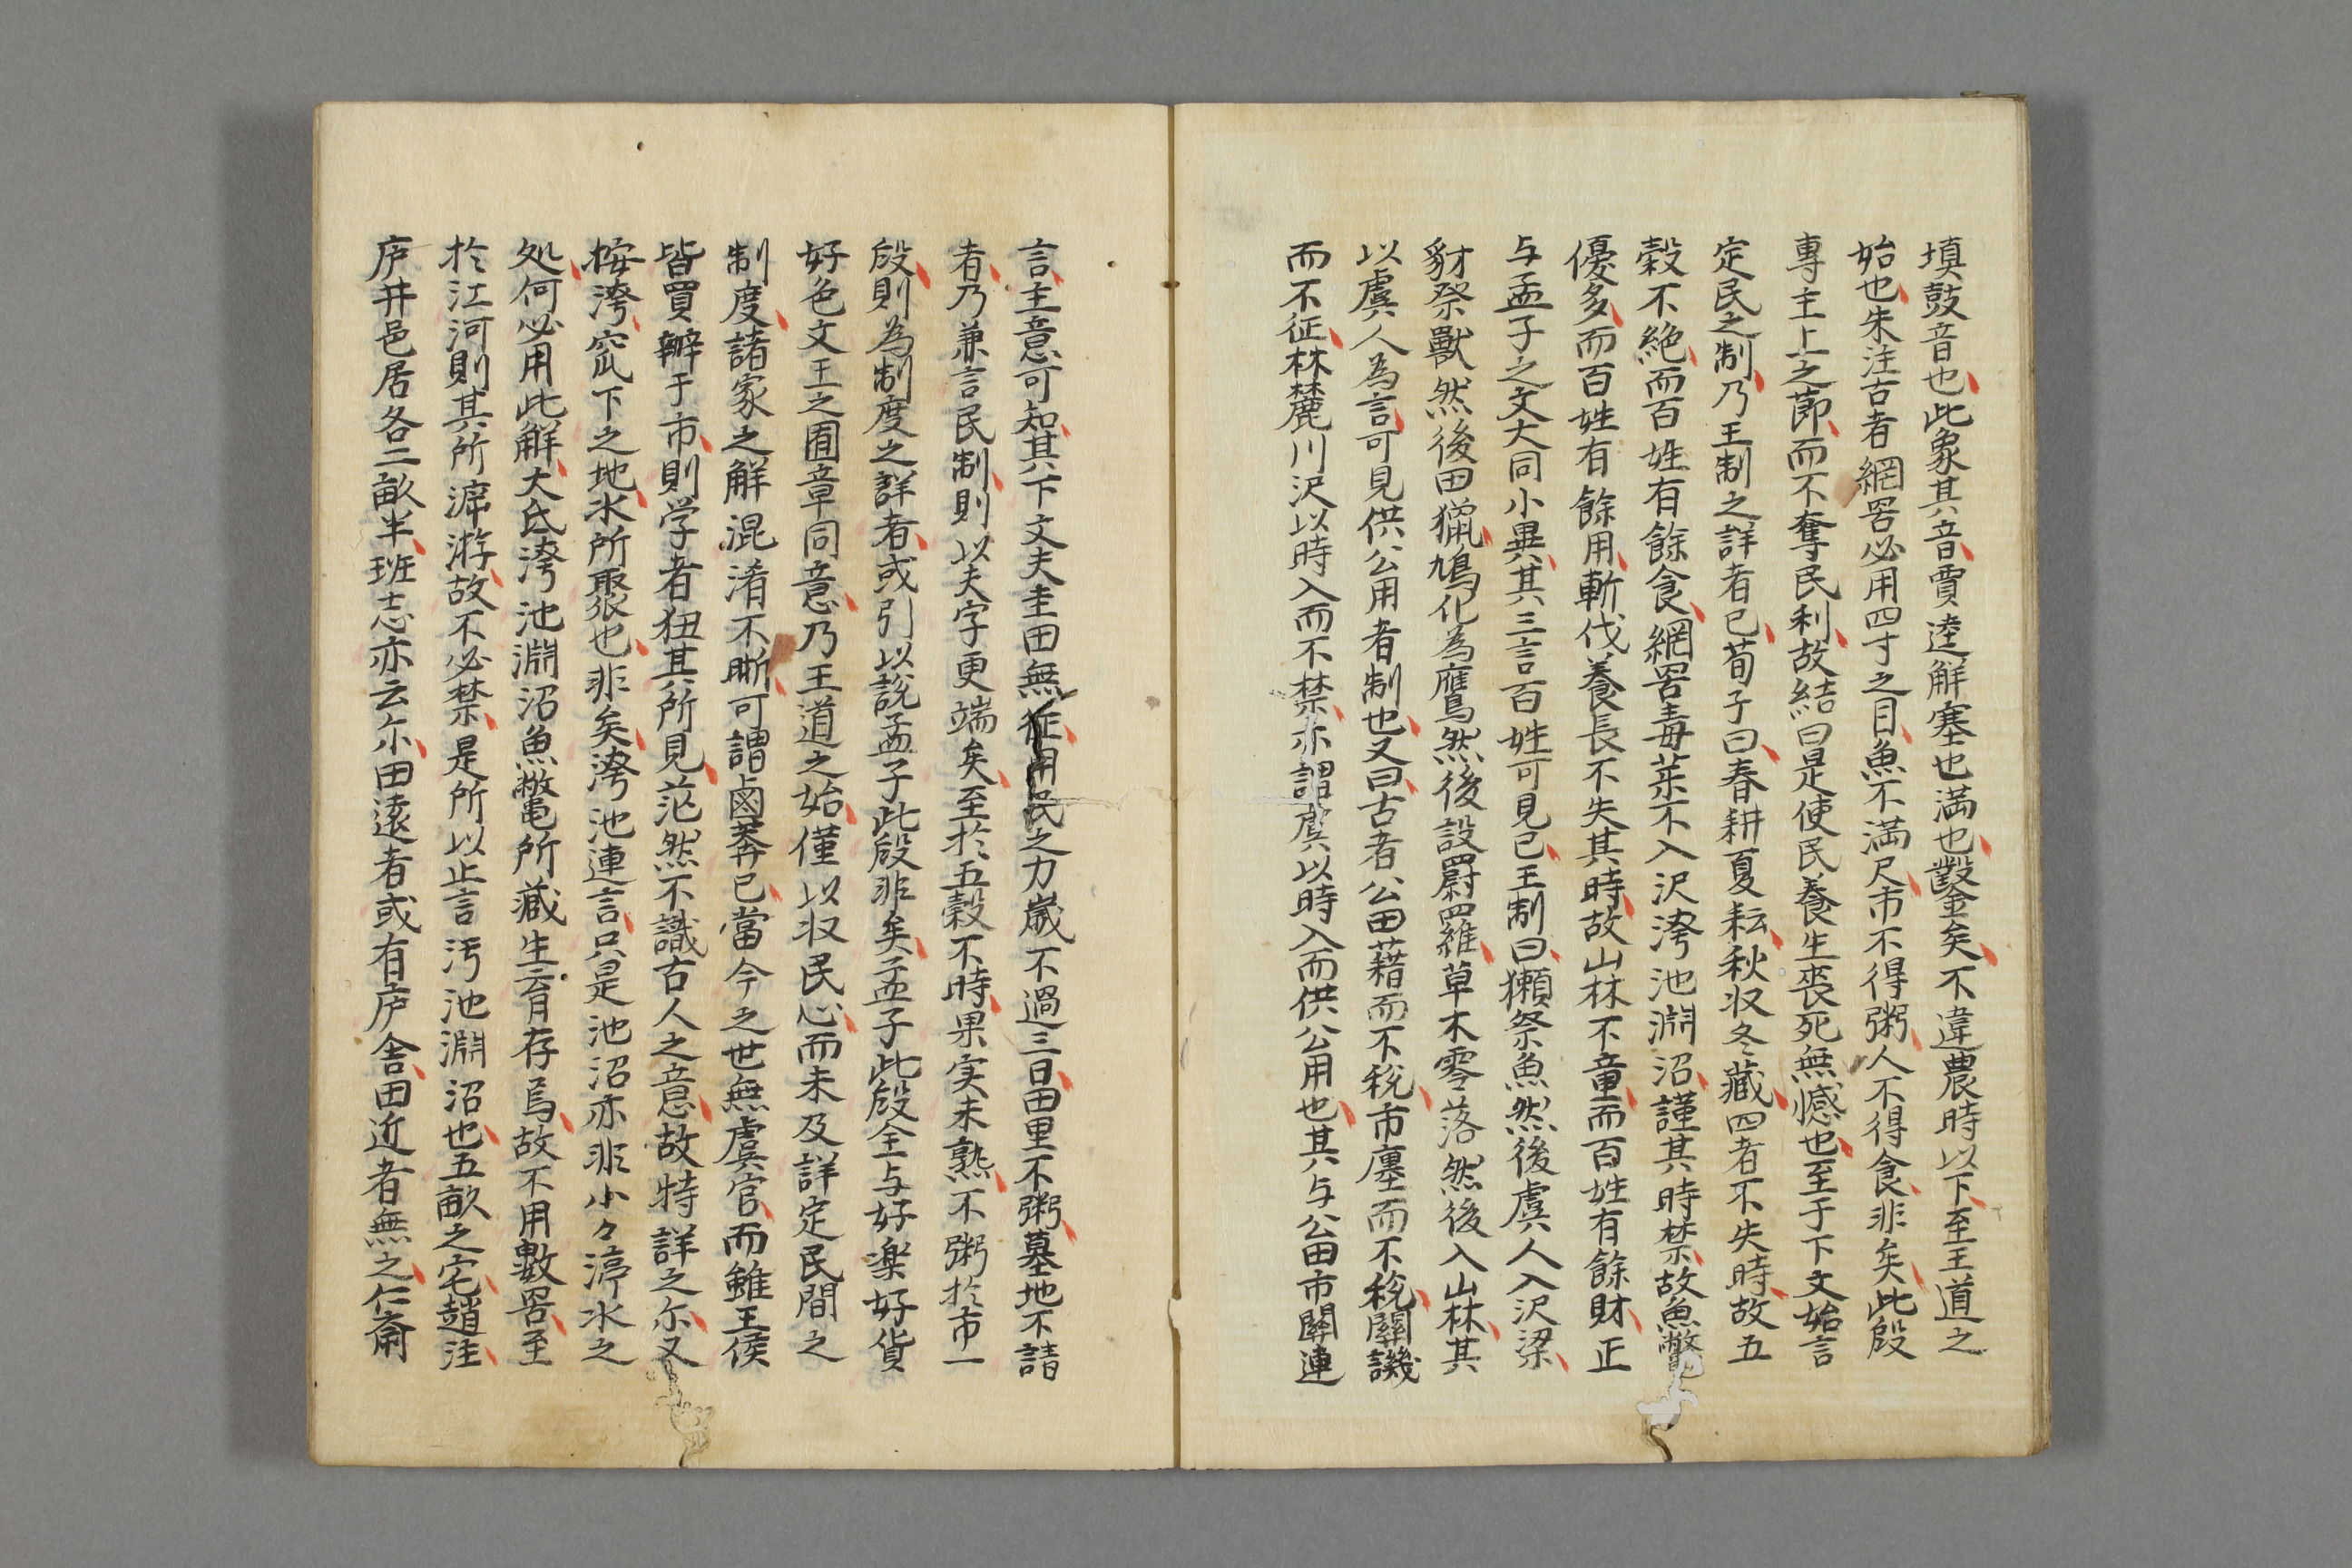 填鼓音也此象其音賈逵解塞也満也鑿矣不違農時以下至王道之
始也朱注古者網罟必用四寸之目魚不満尺市不得粥人不得食非矣此段
專主上之節而不奪民利故結曰是使民養生喪死無憾也至于下文始言
定民之制乃王制之詳者已荀子曰春耕夏耘秋収冬藏四者不失時故五
穀不絶而百姓有餘食網罟毒藥不入沢洿池淵沼謹其時禁故魚鱉
優多而百姓有餘用斬伐養長不失其時故山林不童而百姓有餘財正
与孟子之文大同小異其三言百姓可見已王制曰獺祭魚然後虞人入沢梁
豺祭獸然後田獵鳩化為鷹然後設罻羅草木零落然後入山林其
以虞人為言可見供公用者制也又曰古者公田藉而不税市廛而不税關譏
而不征林麓川沢以時入而不禁亦謂虞以時入而供公用也其与公田市關連
言主意可知其下文夫圭田無征用民之力歳不過三日田里不粥墓地不請
者乃兼言民制則以夫字更端矣至於五穀不時果実未熟不粥於市一
段則為制度之詳者或引以説孟子此段非矣孟子此段全与好楽好貨
好色文王之囿章同意乃王道之始僅以収民心而未及詳定民間之
制度諸家之解混淆不晰可謂鹵莽已當今之世無虞官而雖王侯
皆買辦于市則学者狃其所見茫然不識古人之意故特詳之尓又
按洿窊下之地水所聚也非矣洿池連言只是池沼亦非小々渟水之
処何必用此解大氐洿池淵沼魚鱉黽所藏生育存焉故不用數罟至
於江河則其所游故不必禁是所以止言汚池淵沼也五畝之宅趙注
庐井邑居各二畝半班志亦云尓田遠者或有庐舎田近者無之仁齋